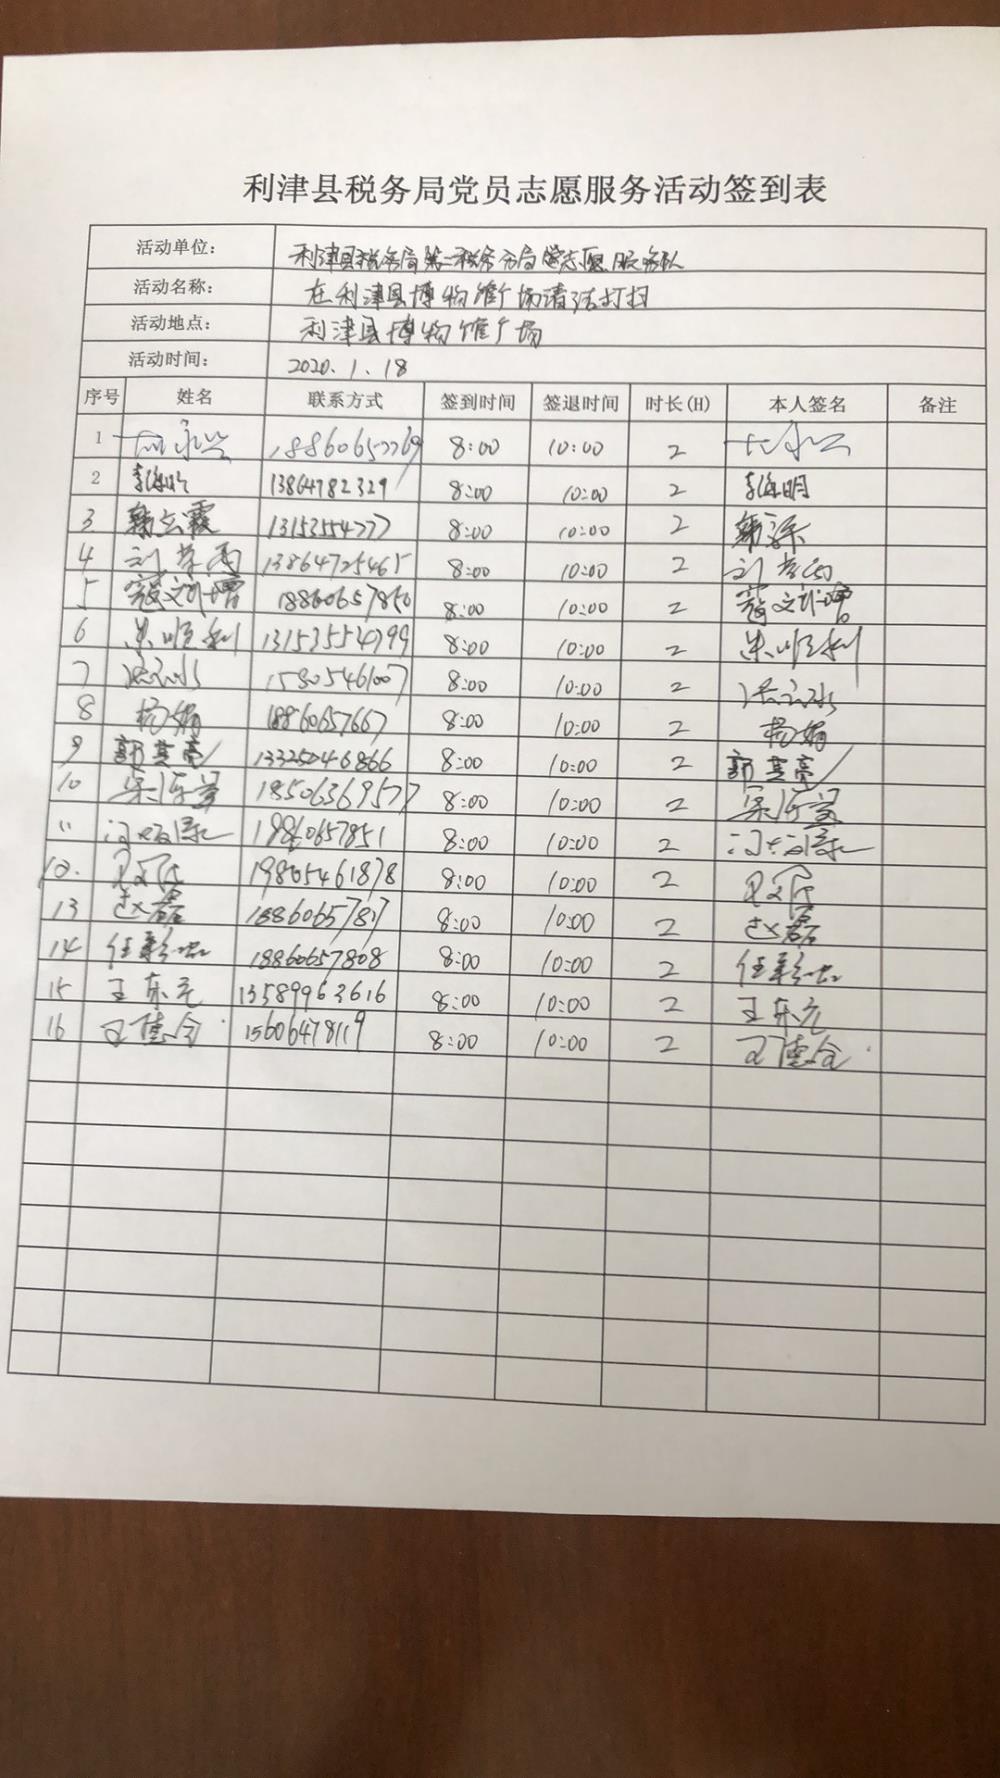 利津县税务局党员志愿服务活动签到表
活动单位: 利津县税务局第一税务分局党志愿服务队
活动名称: 在利津县博物馆广场清洁打扫
活动地点: 利津县博物馆广场
活动时间: 2020.1.18
序号 姓名 联系方式 签到时间 签退时间 时长(H) 本人签名 备注
1 18860657769 8:00 10:00 2
2 李海明 13864782329 8:00 10:00 2 李海明
3 韩云霞 13153554777 8:00 10:00 2
4 13864725465 8:00 10:00 2
5 寇文增 18860657850 8:00 10:00 2 寇文增
6 朱顺利 131535534799 8:00 10:00 2 朱顺利
7 15805461007 8:00 10:00 2
8 杨娟 18860657667 8:00 10:00 2 杨娟
9 郭其亮 13325046866 8:00 10:00 2 郭其亮
10 18506369577 8:00 10:00 2
11 19860657851 8:00 10:00 2
12. 19805461878 8:00 10:00 2
13 赵磊 18860657817 8:00 10:00 2 赵磊
14 任彩虹 18860657808 8:00 10:00 2 任彩虹
15 王东元 13589963616 8:00 10:00 2 王东元
16 王德全 15606478119 8:00 10:00 2 王德全